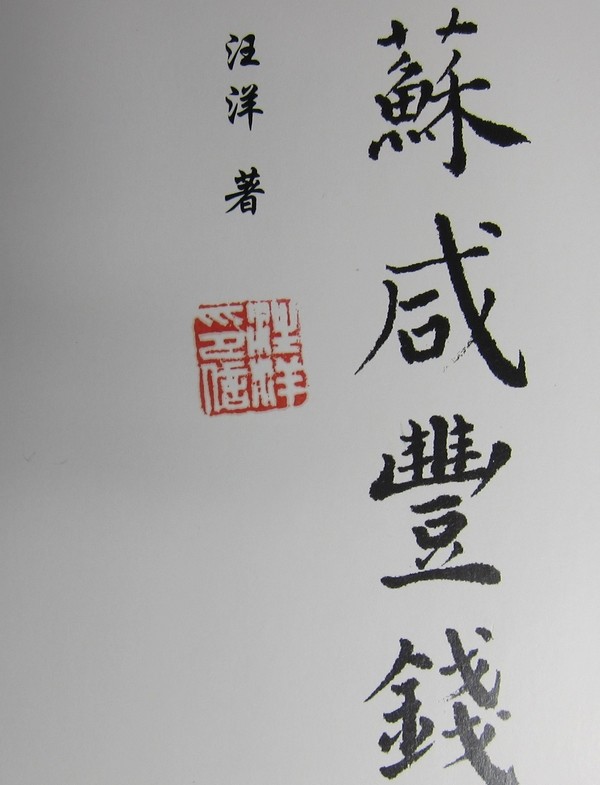 蘇咸豐錢
汪洋 著
汪洋
印信